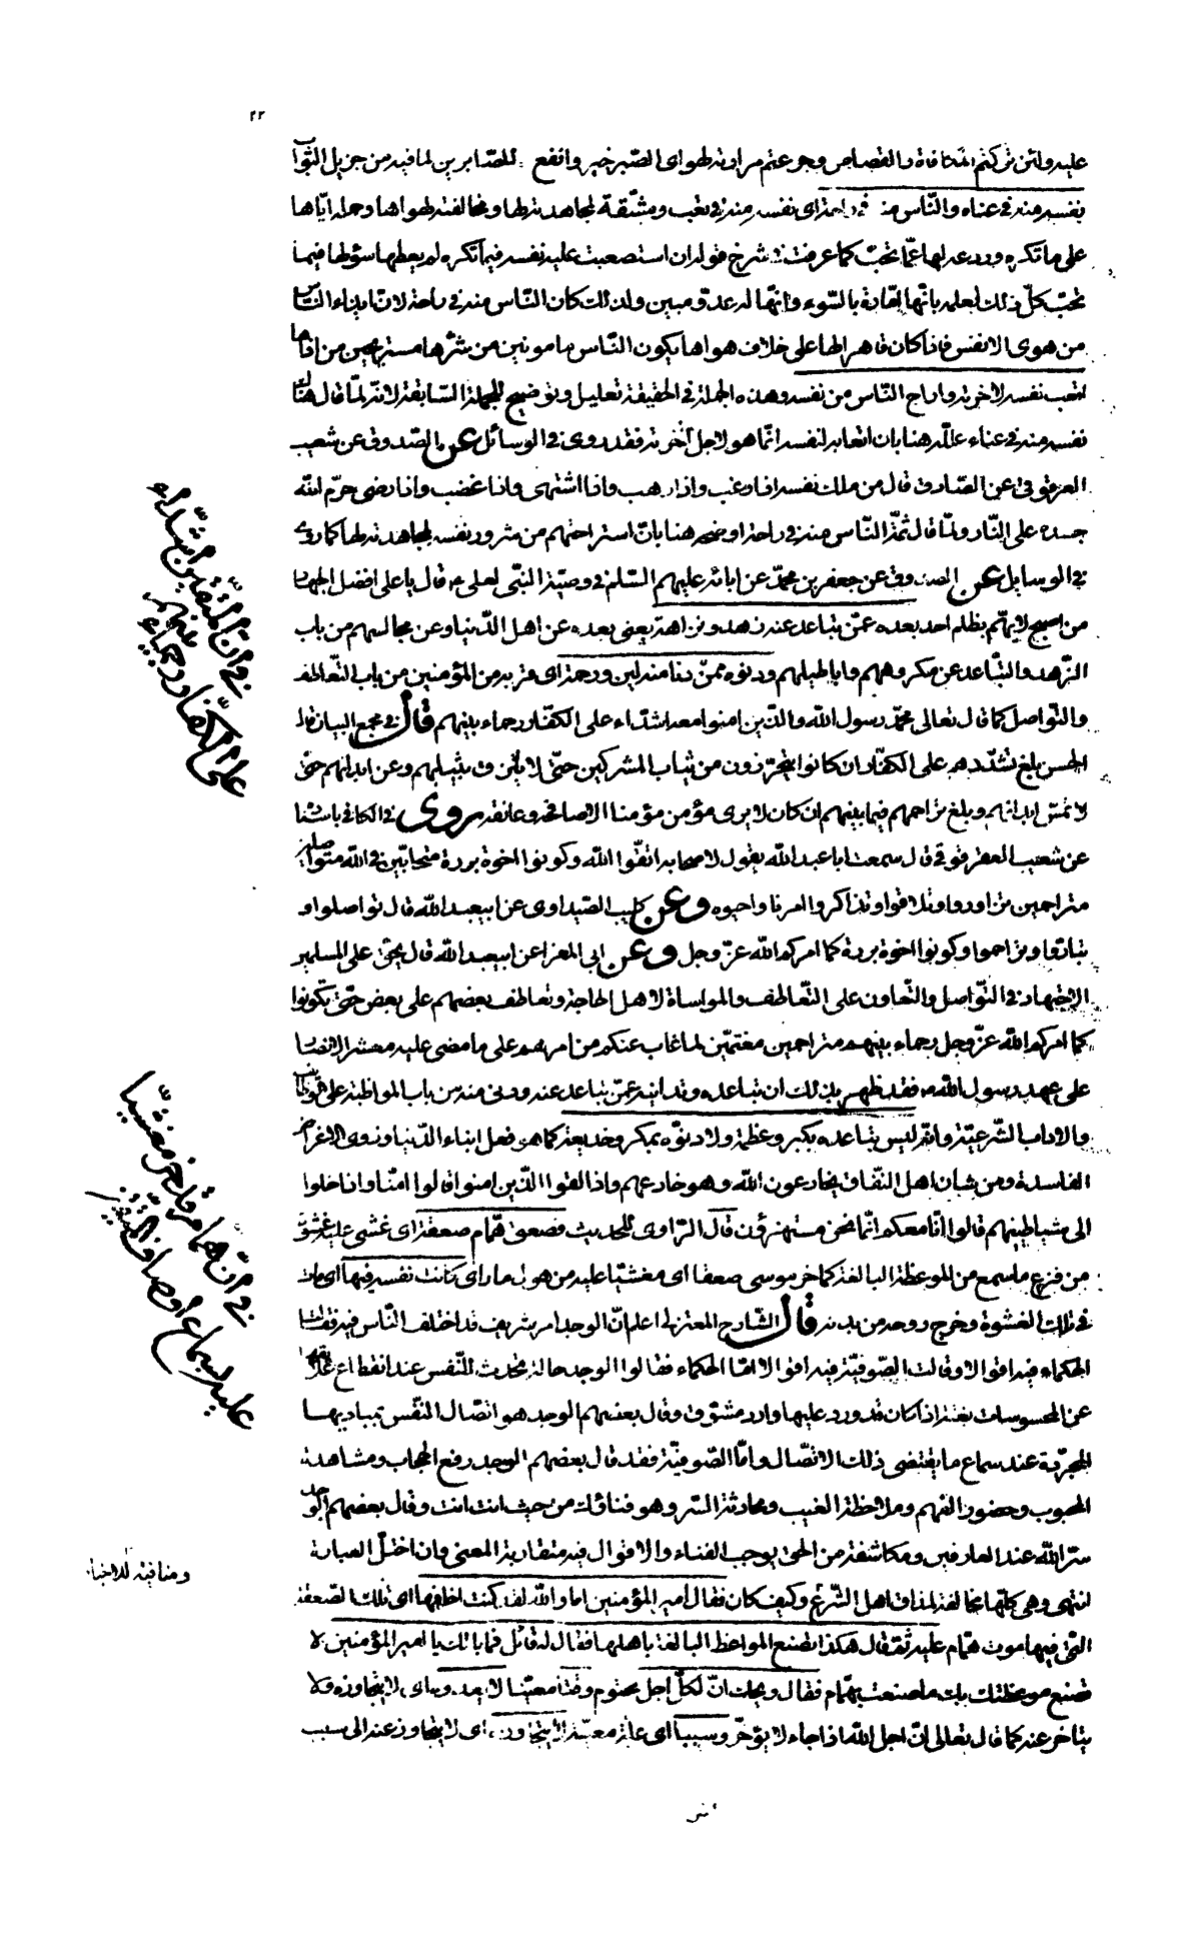 ٢٢
عليه ولئن تركتم المكافاة والقصاص وجرعتم مرارته لهو اى الصبر خير وانفع للصّابرين لما فيه من جزيل الثواب
نفسه منه فى عناء والنّاس منه فى راحة اى نفسه منه فى تعب ومشقة لمجاهدته لها ومخالفته لهواها وحمله ايّاها
على ما تكره وردعه لها عمّا تحبّ كما عرفت شرح قوله ان استصعبت عليه نفسه فيما تكره لم يعطها سؤلها فيما
تحبّ كلّ ذلك لعلمه بانّها امّارة بالسّوء وانّها له عدوّ مبين ولذلك كان النّاس منه فى راحة لانّ ايذاء النّاس
من هوى الانفس فاذا كان قاهرا لها على خلاف هواها يكون النّاس مامونين من شرّها مستريحين من اذاها
اتعب نفسه لاخرته واراح النّاس من نفسه وهذه الجملة فى الحقيقة تعليل وتوضيح للجملة السّابقة لانّه لمّا قال هناك
نفسه منه فى عناء علّله هنا بان اتعابه لنفسه انّما هو لاجل آخرته فقد روى فى الوسائل عن الصّدوق عن شعيب
العقرقوفى عن الصّادق قال من ملك نفسه اذا رغب واذا رهب واذا اشتهى واذا غضب واذا رضى حرّم الله
جسده على النّار ولمّا قال ثمّة النّاس منه فى راحة اوضحه هنا بانّ استراحتهم من شرور نفسه لمجاهدته لها كما روى
فى الوسايل عن الصدوق عن جعفر بن محمّد عن ابائه عليهم السّلم فى وصيّة النّبى لعلى ع قال يا على افضل الجهاد
من اصبح لا يهمّ بظلم احد بعده عمّن تباعد عنه زهد ونزاهة يعنى بعده عن اهل الدّنيا وعن مجالسهم من باب
الزّهد والتّباعد عن مكروههم واباطيلهم ودنوّه ممّن دنا منه لين ورحمة اى قربه من المؤمنين من باب التّعاطف
والتّواصل كما قال تعالى محمّد رسول الله والذّين امنوا معه اشدّاء على الكفّار رحماء بينهم قال فى مجمع البيان قال
الحسن بلغ تشدّدهم على الكفّار ان كانوا يتحرّزون من ثياب المشركين حتّى لا يلتزق بثيابهم وعن ابدانهم حتّى
لا تمسّ ابدانهم وبلغ تراحمهم فيما بينهم ان كان لا يرى مؤمن مؤمنا الا صافحه وعانقه روى فى الكافى باسنا
عن شعيب العقرقوفى قال سمعت ابا عبد الله يقول لاصحابه اتقّوا الله وكونوا اخوة بررة متحابّين فى الله متواصلين
متراحمين تزاوروا وتلاقوا وتذاكروا امرنا واحيوه وعن كليب الصّيداوى عن ابيعبد الله قال تواصلوا و
تبارّوا وتراحموا وكونوا اخوة بررة كما امركم الله عزّ وجل وعن ابى المعزا عن ابيعبد الله قال يحقّ على المسلمين
الاجتهاد فى التّواصل والتّعاون على التّعاطف والمواساة لاهل الحاجة وتعاطف بعضهم على بعض حتّى تكونوا
كما امركم الله عزّ وجل رحماء بينهم متراحمين مغتمّين لما غاب عنكم من امرهم على ما مضى عليه معشر الانصار
على عهد رسول الله ص فقد ظهر بذلك ان تباعده وتدانيه عمّن تباعد عنه ودنى منه من باب المواظبة على الوظائف
والاداب الشّرعيّة وانّه ليس تباعده بكبر وعظمة ولا دنوّه بمكر وخديعة كما هو فعل ابناء الدّنيا وذوى الاغراض
الفاسدة ومن شان اهل النّفاق يخادعون الله وهو خادعهم واذا لقوا الذّين امنوا قالوا امنّا واذا خلوا
الى شياطينهم قالوا انّا معكم انّما نحن مستهزؤن قال الرّاوى للحديث فصعق همّام صعقة اى غشى عليه غشوة
من فزع ما سمع من الموعظة البالغة كما خرّ موسى صعقا اى مغشيّا عليه من هول ما راى كانت نفسه فيها اى مات
فى تلك الغشوة وخرج روحه من بدنه قال الشّارح المعتزلى اعلم انّ الوجد امر شريف قد اختلف النّاس فيه فقالت
الحكماء فيه اقوالا وقالت الصّوفيّة فيه اقوالا امّا الحكماء فقالوا الوجد حالة تحدث للنّفس عند انقطاع علائقها
عن المحسوسات بغتة اذا كان قد ورد عليها وارد مشوّق وقال بعضهم الوجد هو اتّصال النّفس بمباديها
المجرّدة عند سماع ما يقتضى ذلك الاتّصال وامّا الصّوفيّة فقد قال بعضهم الوجد رفع الحجاب ومشاهدة
المحبوب وحضور الفهم وملاحظة الغيب ومحادثة السّر وهو فناؤك من حيث انت انت وقال بعضهم الوجد
سرّ الله عند العارفين ومكاشفة من الحق يوجب الفناء والاقوال فيه متقاربة المعنى وان اختلّ العبارة
انتهى وهى كلّها مخالفة لمذاق اهل الشّرع وكيف كان فقال امير المؤمنين اما والله لقد كنت اخافها اى تلك الصّعقة
التّى فيها موت همّام عليه ثمّ قال هكذا تصنع المواعظ البالغة باهلها فقال له قائل فما بالك يا امير المؤمنين لا
تصنع موعظتك بك ما صنعت بهمّام فقال ويحك انّ لكلّ اجل محتوم وقتا معيّنا لا يعدوه اى لا يتجاوزه ولا
يتاخر عنه كما قال تعالى انّ اجل الله اذا جاء لا يؤخّر وسببا اى علة معيّنة لا يتجاوزه اى لا يتجاوز عنه الى سبب
فى انّ المتّقين اشدّاء
على الكفّار ورحماء بينهم
فى انّ همّام رة قد خرّ مغشيّا
عليه لسماع اوصاف المتّقين